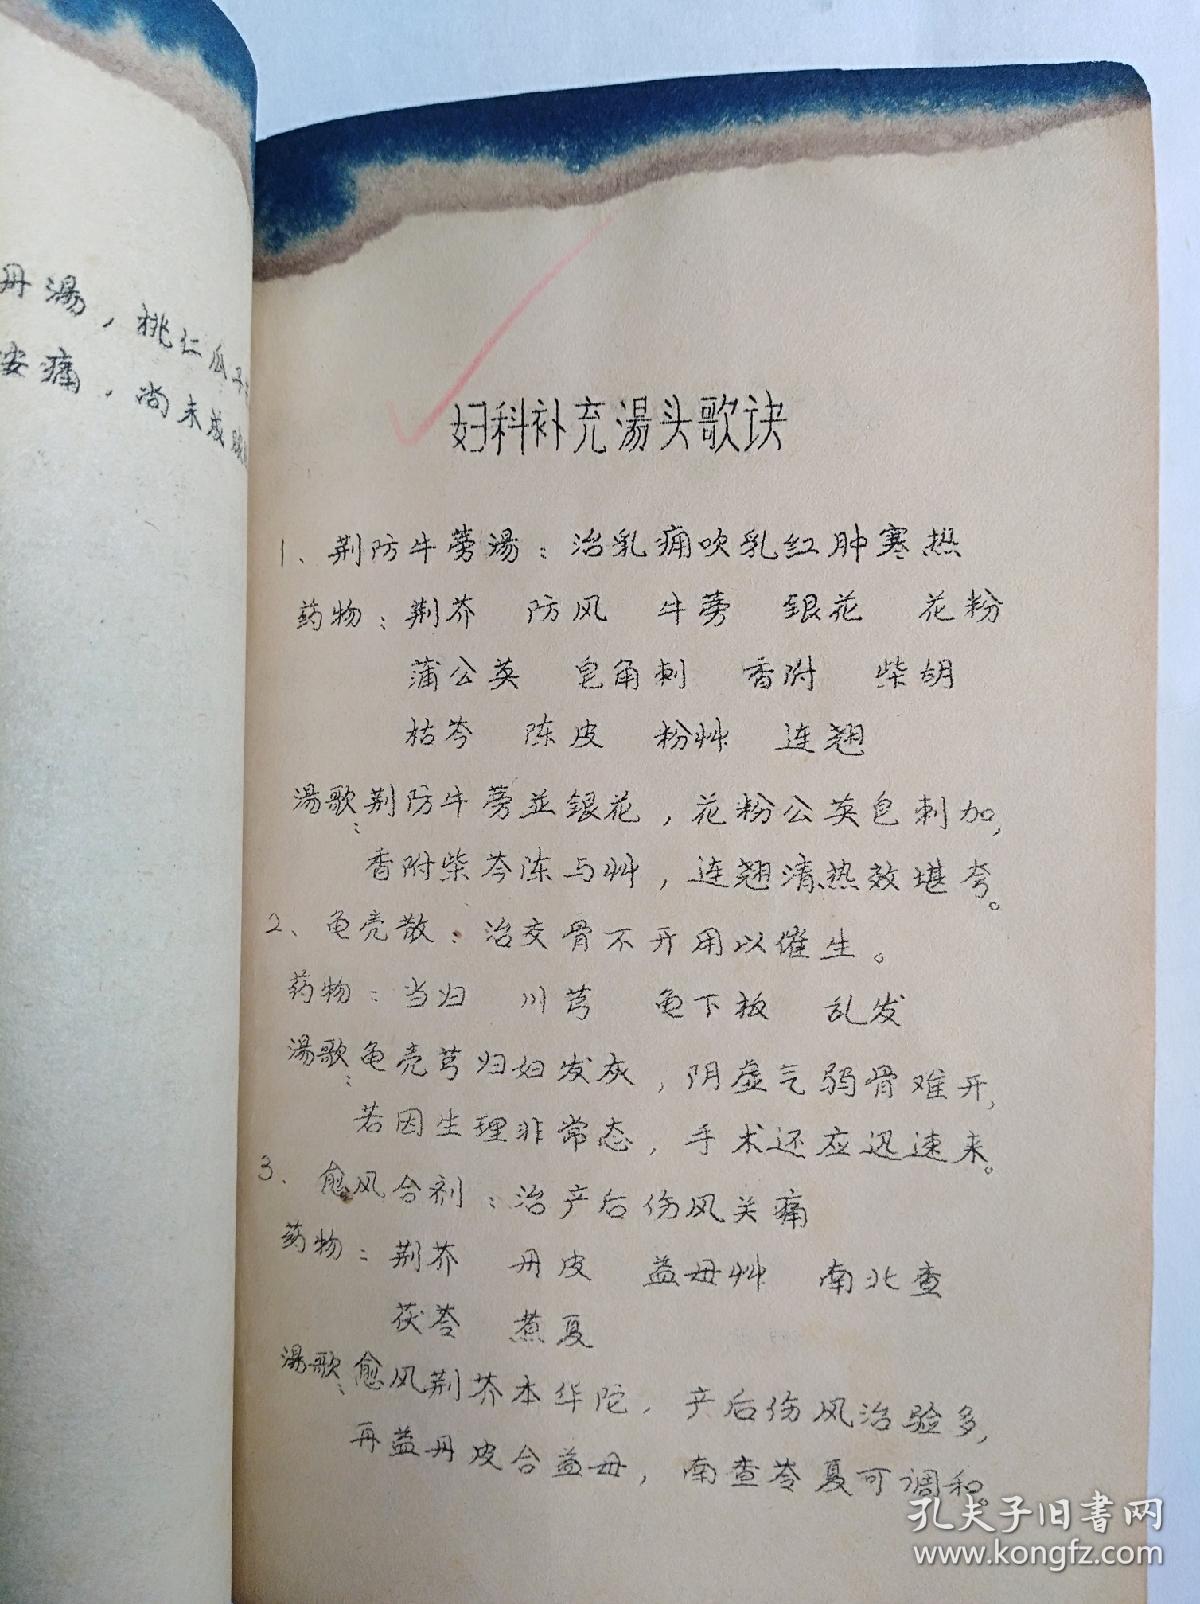 丹湯，桃仁瓜子
安痛，尚未成脓
妇科补充湯头歌诀
1、荆防牛蒡湯：治乳痈吹乳红肿寒热
药物：荆芥 防风 牛蒡 银花 花粉
蒲公英 皂角刺 香附 柴胡
枯芩 陈皮 粉艸 连翘
湯歌：荆防牛蒡並银花，花粉公英皂刺加，
香附柴芩陈与艸，连翘清热效堪夸。
2、龟壳散：治交骨不开用以催生。
药物：当归 川芎 龟下板 乱发
湯歌：龟壳芎归妇发灰，阴虚气弱骨难开，
若因生理非常态，手术还应迅速来。
3、愈风合剂：治产后伤风关痛
药物：荆芥 丹皮 益母艸 南北查
茯苓 煮夏
湯歌：愈风荆芥本华陀，产后伤风治验多，
再益丹皮合益母，南查苓夏可调和。
孔夫子旧书网
www.kongfz.com